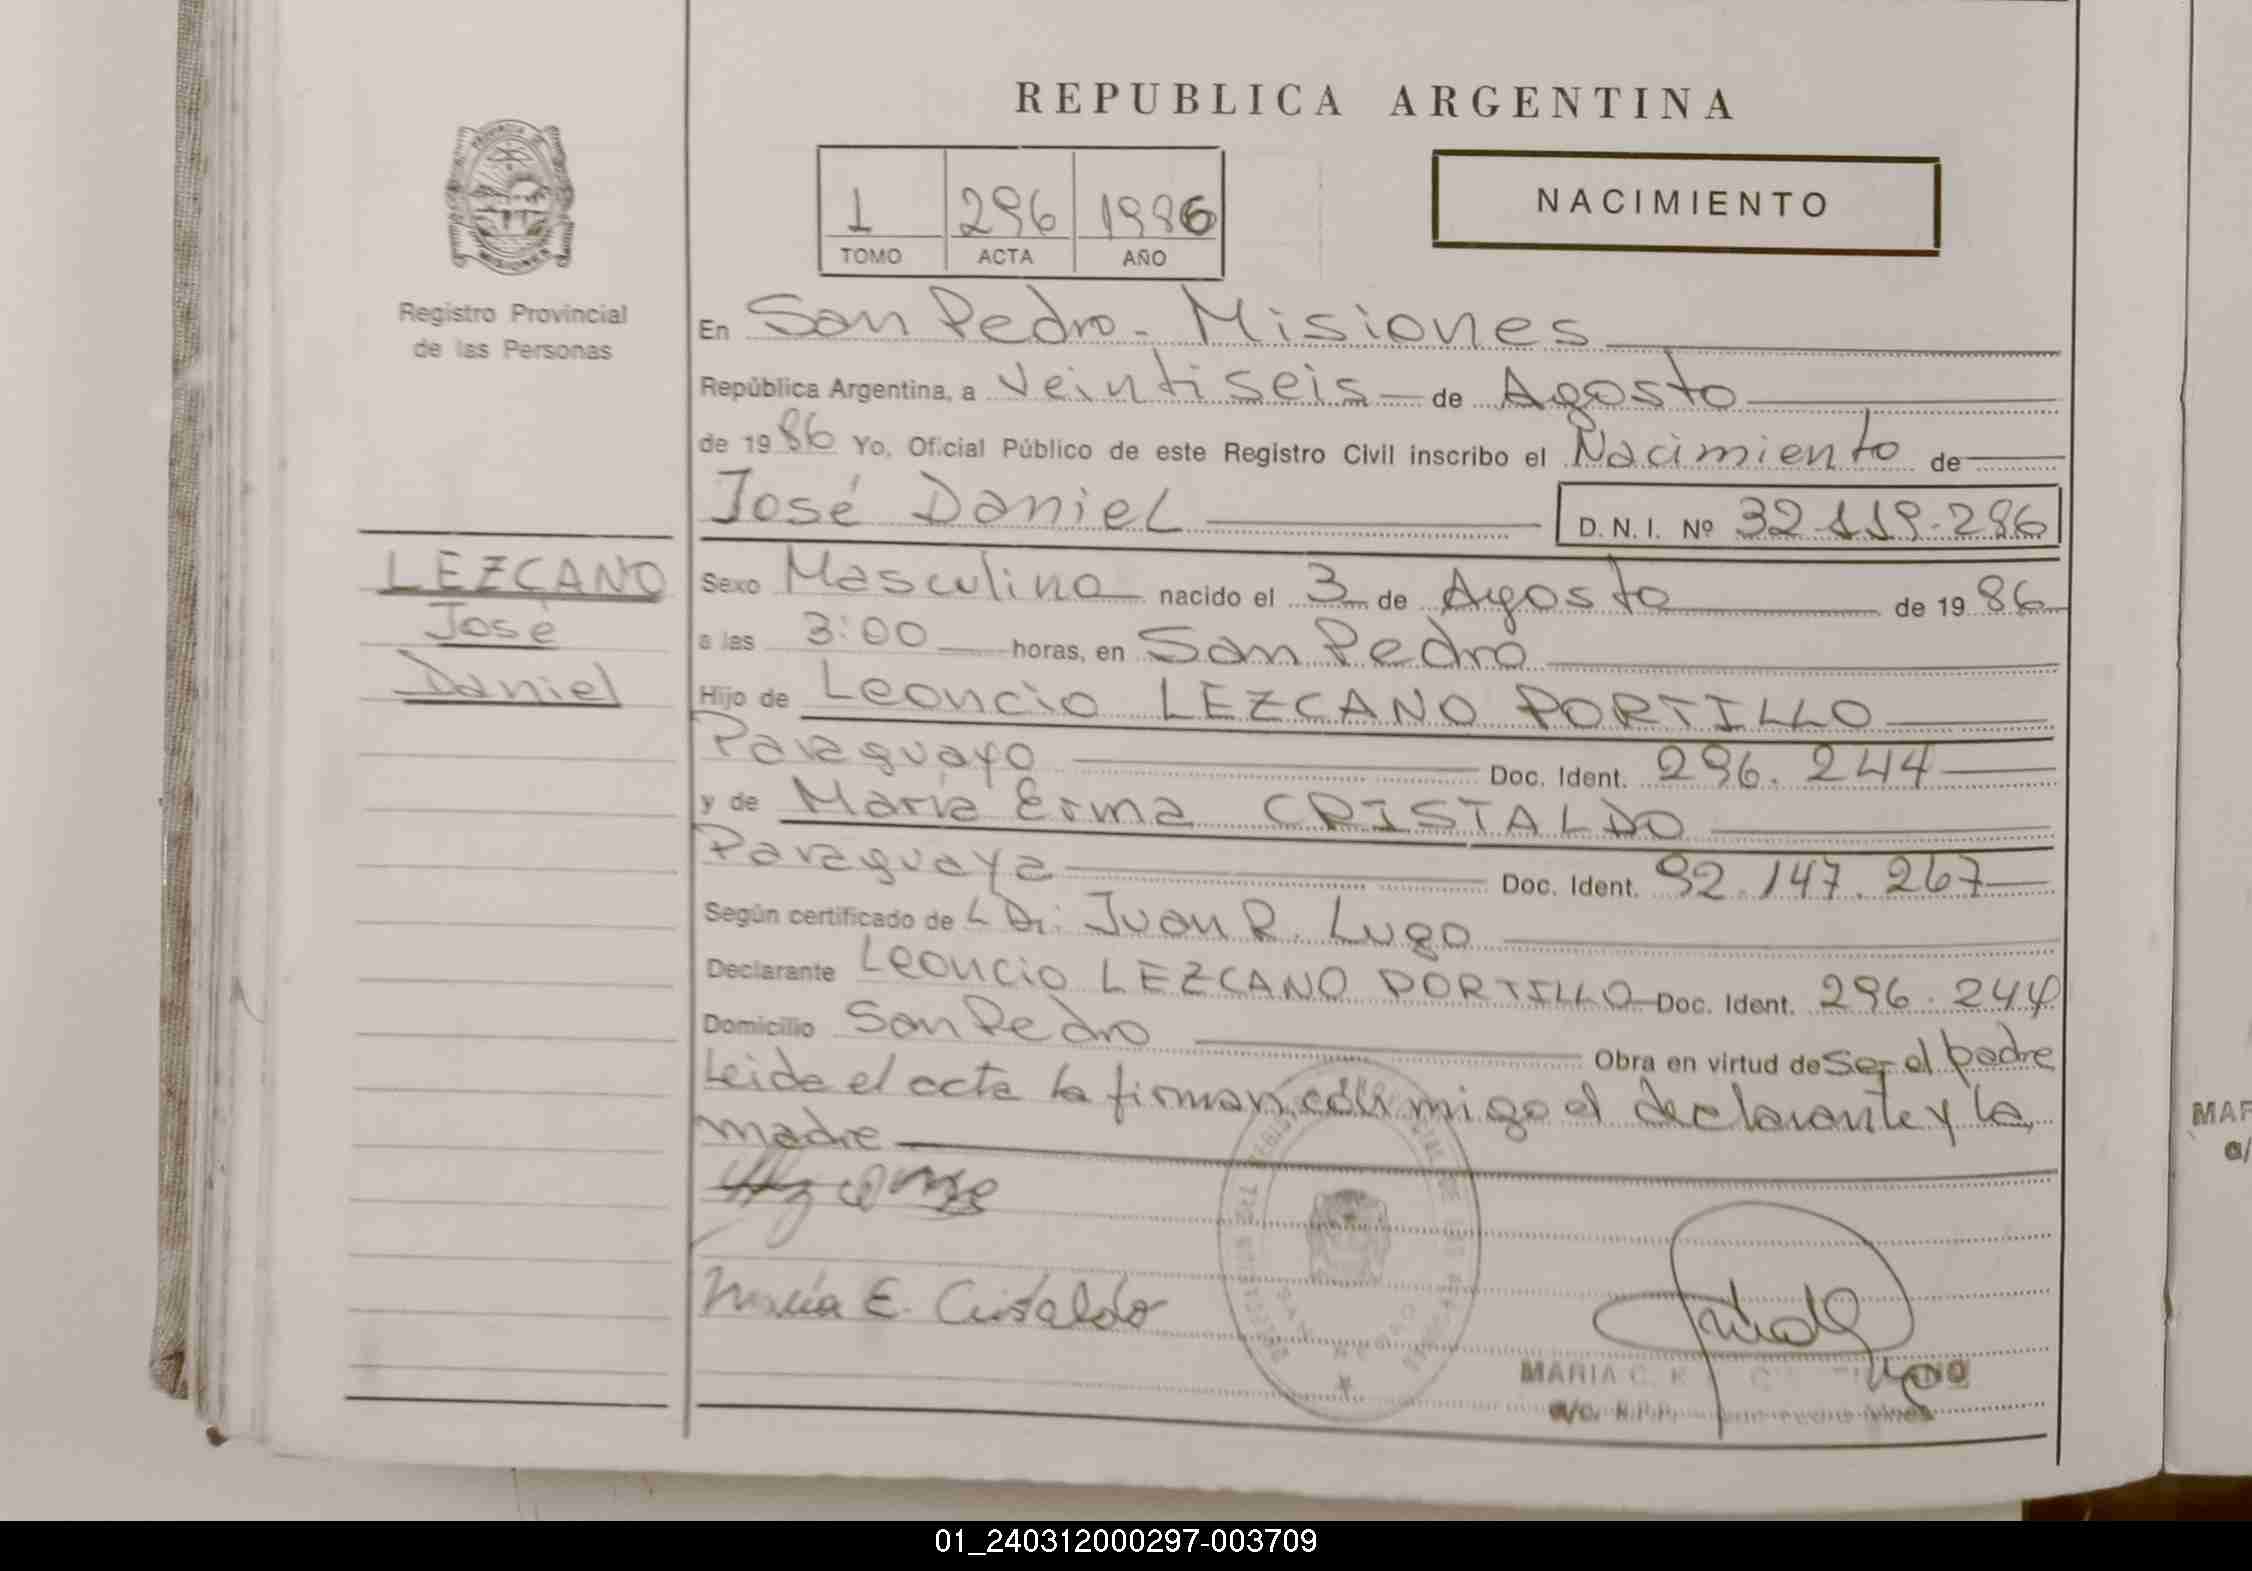 REPUBLICA ARGENTINA
PROVINCIA DE
MISIONES
Registro Provincial
de las Personas
1 296 1986
TOMO ACTA AÑO
NACIMIENTO
En San Pedro - Misiones
República Argentina, a Veintiseis de Agosto
de 1986 Yo, Oficial Público de este Registro Civil inscribo el Nacimiento de
José Daniel D. N. I. Nº 32.119.286
LEZCANO
José
Daniel
Sexo Masculino nacido el 3 de Agosto de 1986
a las 3:00 horas, en San Pedro
Hijo de Leoncio LEZCANO PORTILLO
Paraguayo Doc. Ident. 296.244
y de María Erma CRISTALDO
Paraguaya Doc. Ident. 92.147.267
Según certificado de L Dr. Juan R. Lugo
Declarante Leoncio LEZCANO PORTILLO Doc. Ident. 296.244
Domicilio San Pedro Obra en virtud de Ser el padre
Leida el acta la firman conmigo el declarante y la
madre
María E. Cristaldo
MARIA C.
a/c. R.P.P.
MAR
a/
01_240312000297-003709